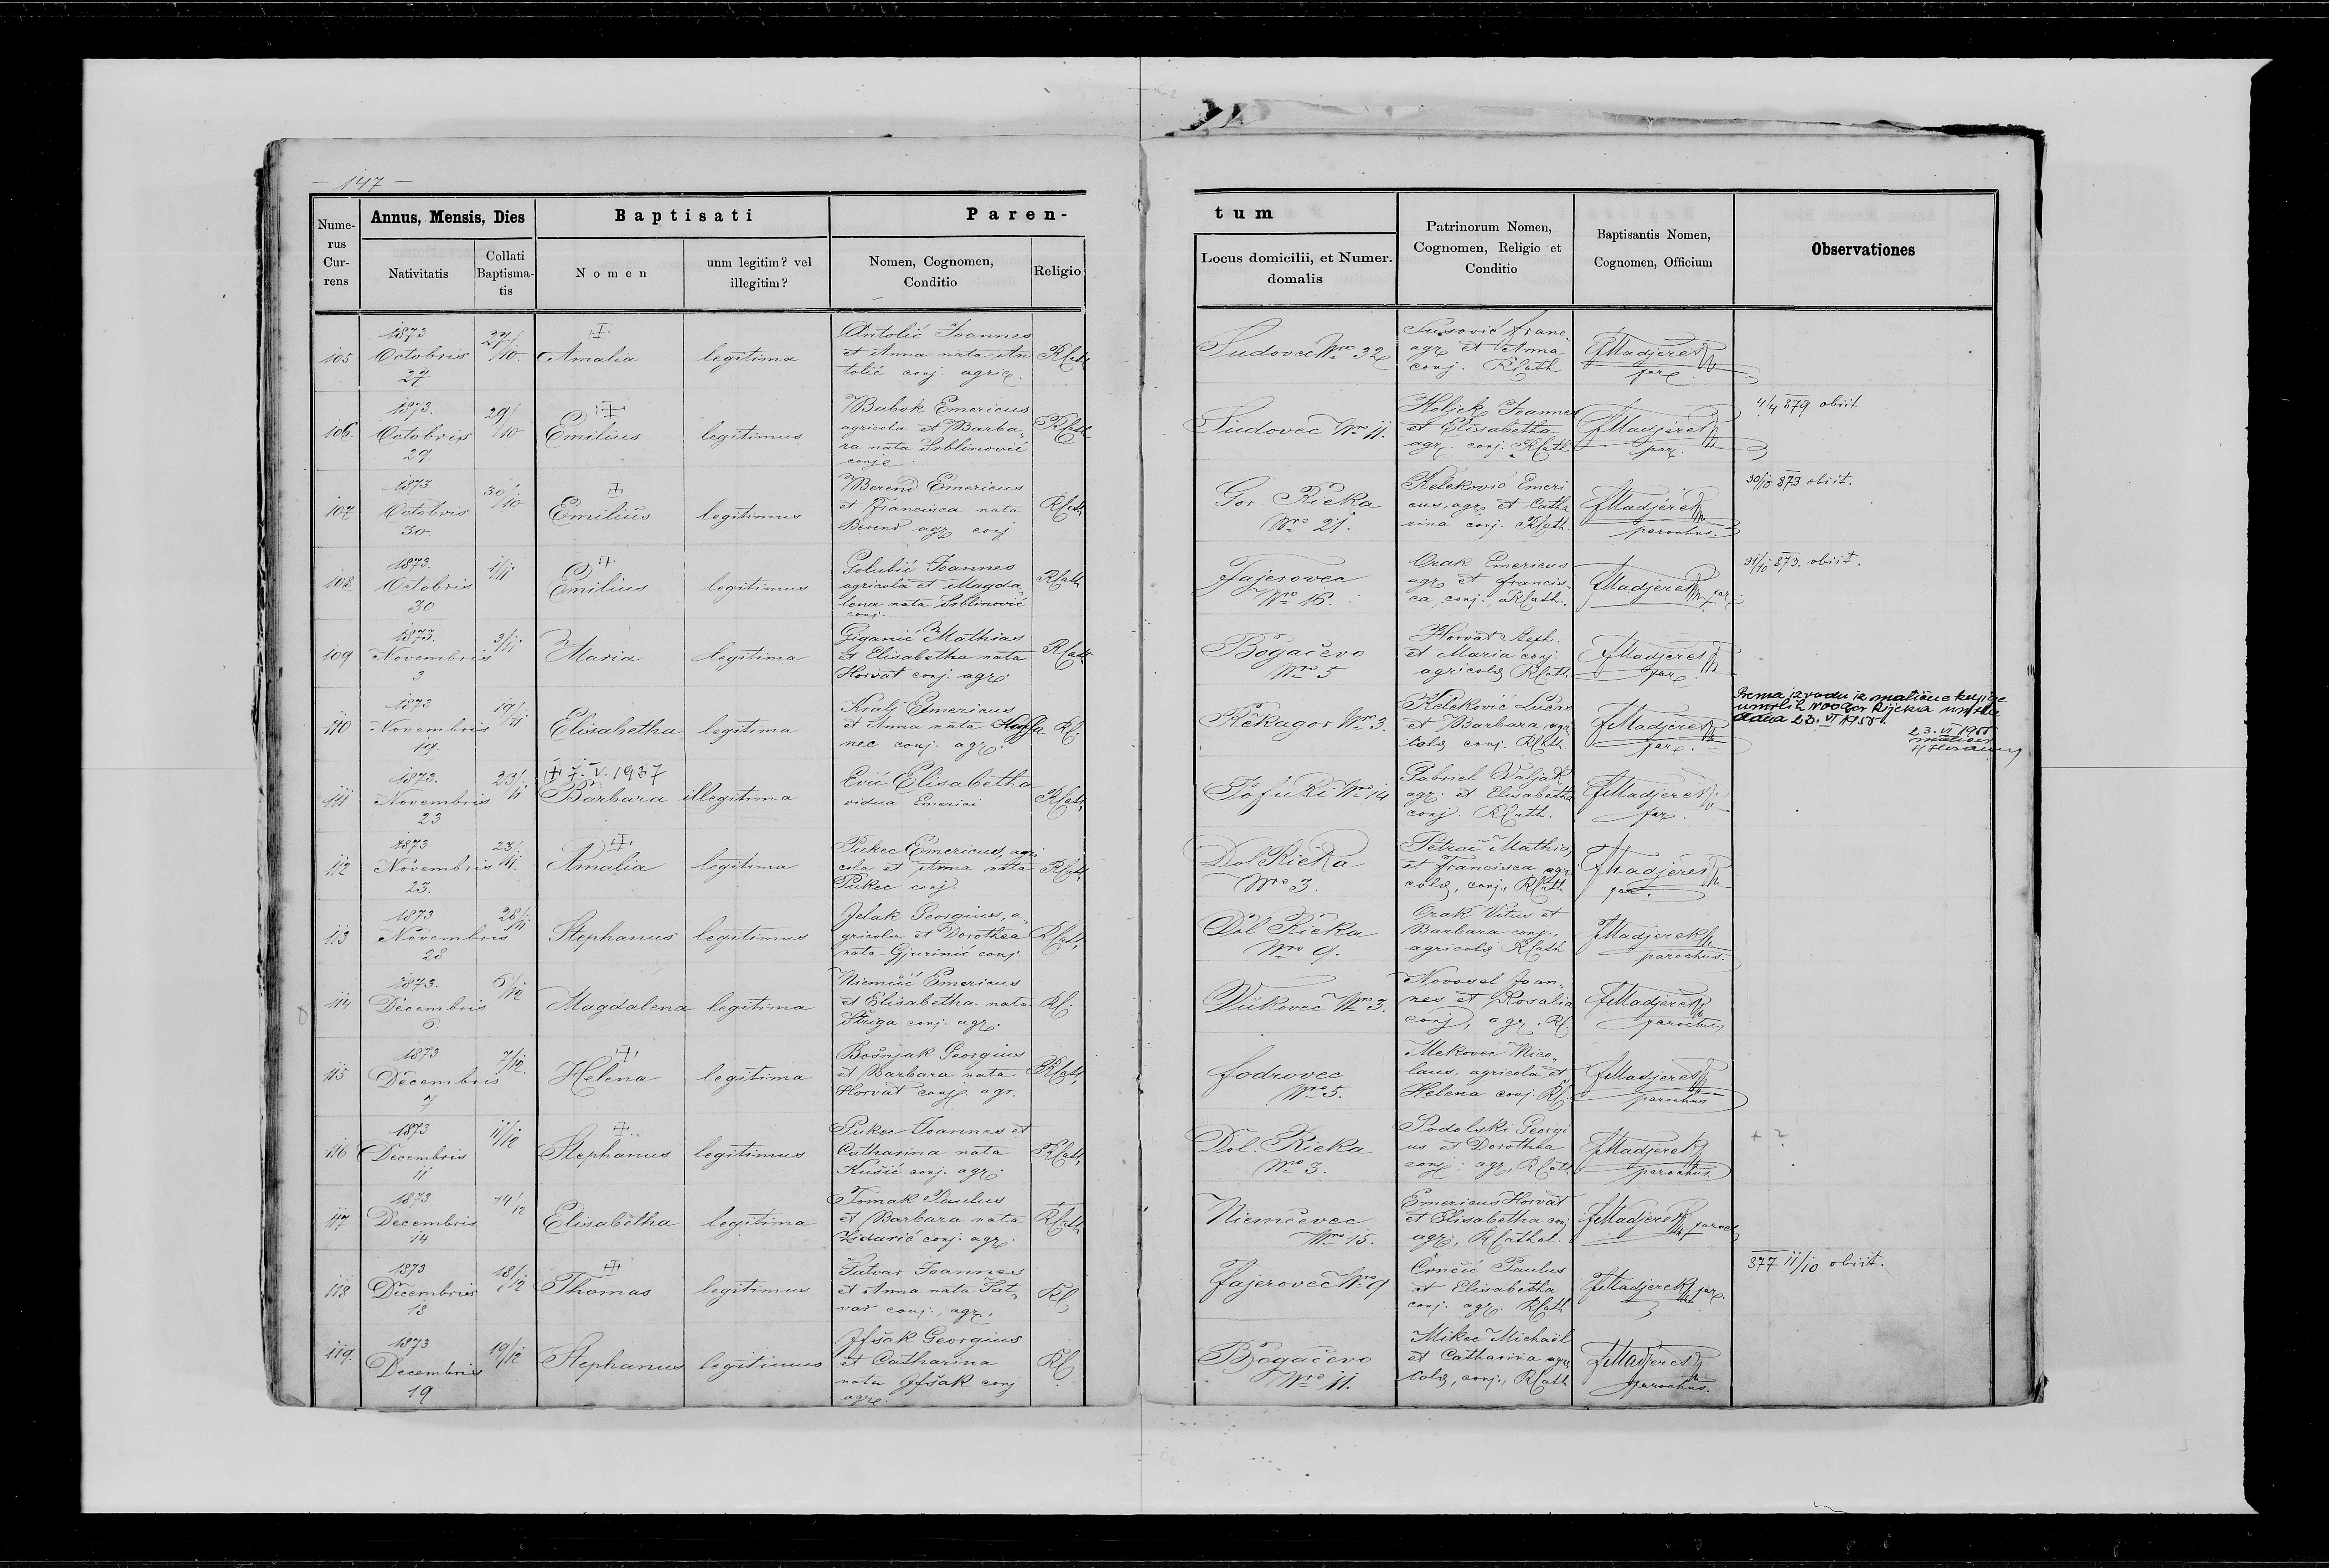 — 147 —
Annus, Mensis, Dies
Baptisati
Paren-
tum
Nume-
rus
Cur-
rens
Nativitatis
Collati
Baptisma-
tis
Nomen
unm legitim? vel
illegitim?
Nomen, Cognomen,
Conditio
Religio
Locus domicilii, et Numer.
domalis
Patrinorum Nomen,
Cognomen, Religio et
Conditio
Baptisantis Nomen,
Cognomen, Officium
Observationes
105
1873
Octobris
27
27/10.
Amalia
legitima
Antolić Joannes
et Anna nata An
tolić conj. agric.
RCath
Sudovec Nro 32
franc.
agr. et Anna
conj. RCath
FMadjerek
par.
106.
1873.
Octobris
29.
29/10
Emilius
legitimus
Babok Emericus
agricola et Barba„
ra nata Srblinović
conj.
RCath
Sudovec Nro 11.
Holjek Joannes
et Elisabetha
agr. conj. RCath
FMadjerek
par.
4/4 879 obiit
107
1873.
Octobris
30.
30/10
Emilius
legitimus
Berend Emericus
et Francisca nata
Berend agr conj
RCath
Gor. Rieka
Nro 21.
Keleković Emeri
cus, agr. et Catha
rina conj. RCath.
FMadjerek
parochus.
30/10 873 obiit.
108
1873.
Octobris
30
1/11
Emilius
legitimus
Golubić Joannes
agricola et Magda„
lena nata Srblinović
conj.
RCath
Fajerovec
Nro 16.
Orak Emericus
agr et francis„
ca, conj., RCath.
FMadjerek par.
31/10 873. obiit.
109
1873.
Novembris
3
3/11
Maria
legitima
Giganić Mathias
et Elisabetha nata
Horvat conj. agr.
RCath
Bogačevo
Nro 5
Horvat Steph.
et Maria conj.
agricolæ RCath
FMadjerek
par.
110
1873
Novembris
19.
19/11
Elisabetha
legitima
Kralj Emericus
et Anna nata
nec conj. agr.
RC.
Rekagor Nro 3.
Keleković Lucas
et Barbara, agri
colæ conj. RCath
FMadjerek
par.
Prema izvodu iz matične knjige
umrlih Rijeka umrla
dana 23. VI 1955.
23. VI 1955
matičar
111
1873.
Novembris
23
23/11
7. V. 1937
Barbara
illegitima
Ević Elisabetha
vidua Emerici
RCath
Pofuki Nro 14
Gabriel Valjak
agr. et Elisabetha
conj. RCath.
FMadjerek
par.
112
1873
Novembris
23.
23/11.
Amalia
legitima
Pukec Emericus, agri
cola et Anna nata
Pukec conj.
RCath
Dol Rieka
Nro 3.
Petrač Mathias
et Francisca agri
colæ, conj., RCath
FMadjerek
par.
113
1873
Novembris
28
28/11
Stephanus
legitimus
Jelak Georgius, a„
gricola et Dorothea
nata Gjurinić conj.
RCath
Dol Rieka
Nro 9.
Orak Vitus et
Barbara conj.,
agricolæ RCath
FMadjerek
parochus.
114
1873.
Decembris
6
6/12
Magdalena
legitima
Niemčić Emericus
et Elisabetha nata
Striga conj. agr.
RC.
Vukovec Nro 3.
Novosel Joan„
nes et Rosalia
conj, agr. RC.
FMadjerek
parochus
115
1873
Decembris
7
7/12.
Helena
legitima
Bošnjak Georgius
et Barbara nata
Horvat conj. agr.
RCath
fodrovec
Nro 5.
Mekovec Nico„
laus, agricola et
Helena conj. RC.
FMadjerek
parochus
116
1873
Decembris
11
11/12
Stephanus
legitimus
Pukec Joannes et
Catharina nata
Kušić conj. agr.
RCath
Dol. Rieka
Nro 3.
Podolski Georgi
us et Dorothea
conj. agr., RCath
FMadjerek
parochus
+ ?
117
1873
Decembris
14
14/12
Elisabetha
legitima
Tomak Paulus
et Barbara nata
Zidarić conj. agr.
RCath
Niemčevec
Nro 15.
Emericus Horvat
et Elisabetha conj
agr., RCathol.
FMadjerek paroch
118
1873
Decembris
18
18/12
Thomas
legitimus
Tatvar Joannes
et Anna nata Tat„
var conj., agr.,
RC
Fajerovec Nro 9
Črnčić Paulus
et Elisabetha
conj. agr. RCath
FMadjerek par.
377 11/10 obiit.
119.
1873
Decembris
19
19/12
Stephanus
legitimus
Jfšak Georgius
et Catharina
nata Jfšak conj
agr.
RC
Bogačevo
Nro 11.
Mikec Michaël
et Catharina agri
colæ, conj., RCath
FMadjerek
parochus.